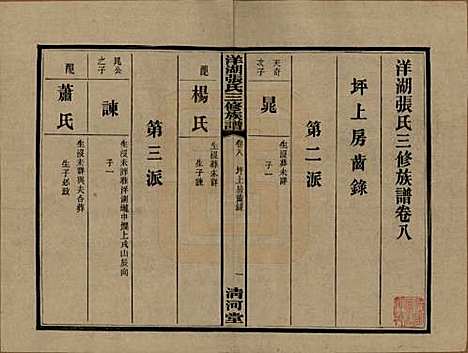 洋湖張氏三修族譜卷八
坪上房齒錄
第二派
天奇
次子
晁
生沒葬未詳
子一
洋湖張氏三修族譜
卷八
坪上房齒錄
一
清河堂
配
楊氏
生沒葬未詳
生子諫
第三派
晁公
之子
諫
生沒未詳葬洋湖壋中
上戍山辰向
子一
配
蕭氏
生沒未詳與夫合葬
生子必政